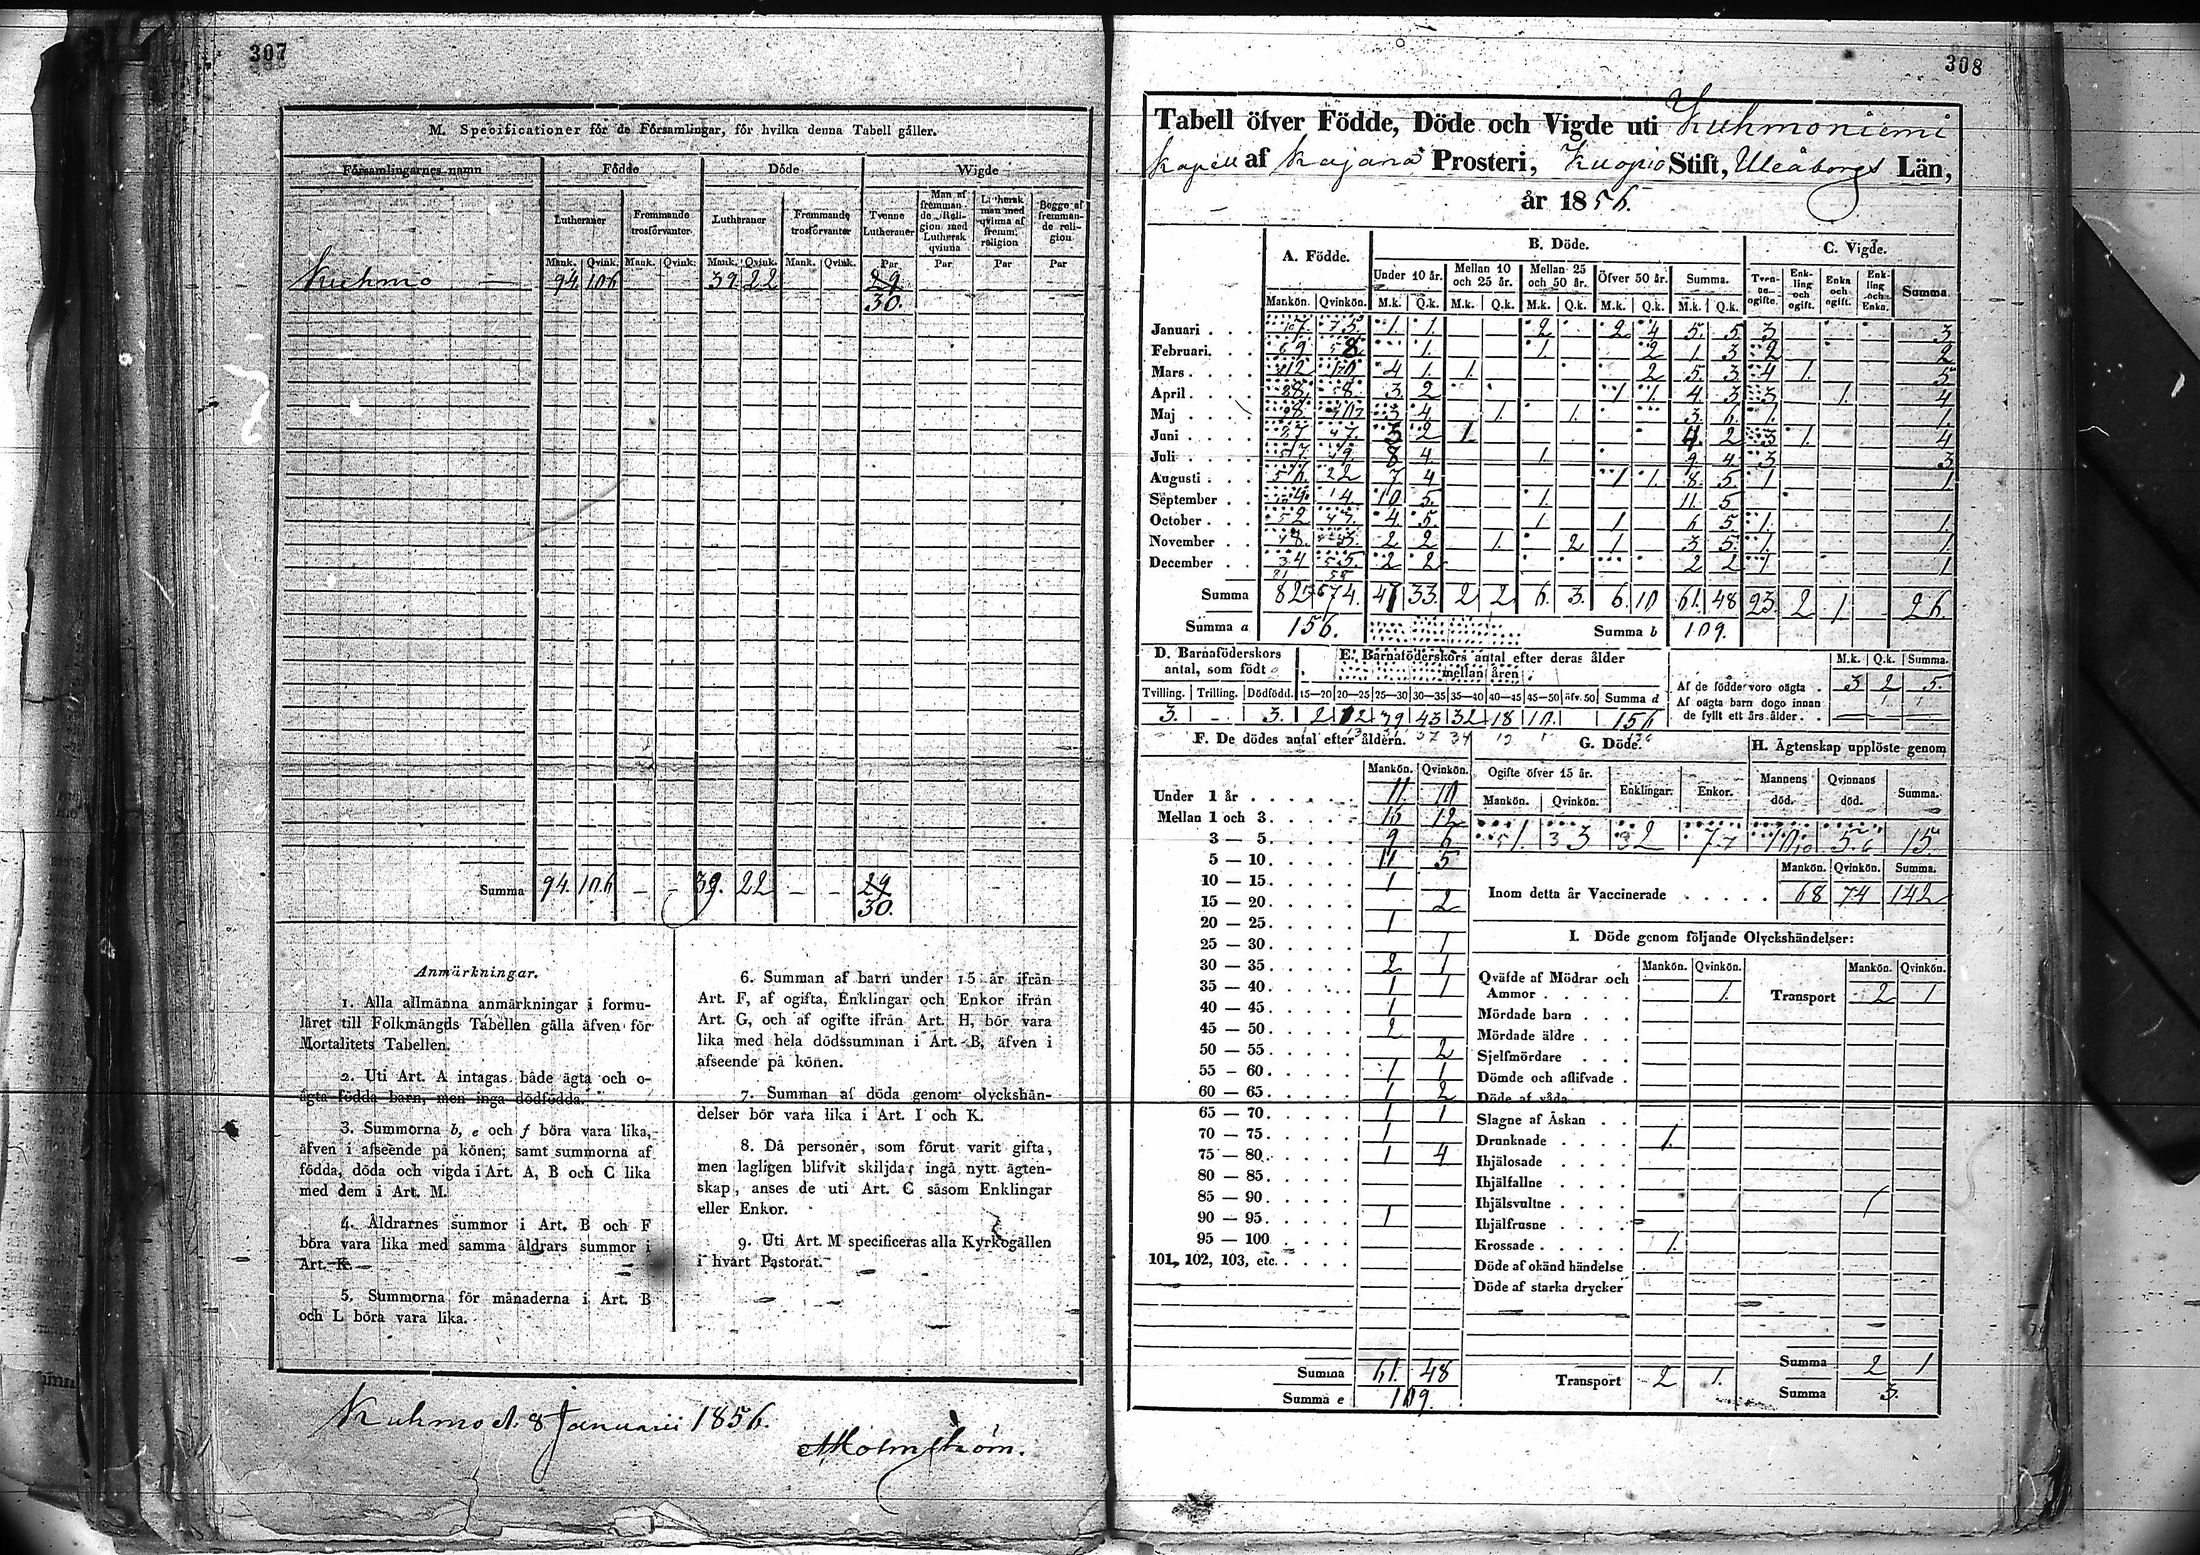 307
M. Specificationer för de Församlingar, för hvilka denna Tabell gäller.
Församlingarnes namn | Födde | Döde | Wigde
Lutheraner | Fremmande trosförvanter | Lutheraner | Fremmande trosförvanter | Tvenne Lutheraner | Man af fremmande Religion med Luthersk qvinna | Luthersk man med qvinna af fremm. religion | Begge af fremmande religion
Mank. | Qvink. | Mank. | Qvink. | Mank. | Qvink. | Mank. | Qvink. | Par | Par | Par | Par
Kuhmo — 94. 106 39. 22 29
30.
Summa 94. 106 — — 39. 22 — — 29
30.
Anmärkningar.
1. Alla allmänna anmärkningar i formu-
läret till Folkmängds Tabellen gälla äfven för
Mortalitets Tabellen.
2. Uti Art. A intagas både ägta och o-
ägta födda barn, men inga dödfödda.
3. Summorna b, e och f böra vara lika,
äfven i afseende på könen; samt summorna af
födda, döda och vigda i Art. A, B och C lika
med dem i Art. M.
4. Åldrarnes summor i Art. B och F
böra vara lika med samma åldrars summor i
Art. K.
5. Summorna för månaderna i Art. B
och L böra vara lika.
6. Summan af barn under 15 år ifrån
Art. F, af ogifta, Enklingar och Enkor ifrån
Art. G, och af ogifte ifrån Art. H, bör vara
lika med hela dödssumman i Art. B, äfven i
afseende på könen.
7. Summan af döda genom olyckshän-
delser bör vara lika i Art. I och K.
8. Då personer, som förut varit gifta,
men lagligen blifvit skiljda, ingå nytt ägten-
skap, anses de uti Art. C såsom Enklingar
eller Enkor.
9. Uti Art. M specificeras alla Kyrkogällen
i hvart Pastorat.
Kuhmo d. 8 Januarii 1856.
Holmström.
308
Tabell öfver Födde, Döde och Vigde uti Kuhmoniemi
Kapell af Kajana Prosteri, Kuopio Stift, Uleåborgs Län,
år 1856.
A. Födde. | B. Döde. | C. Vigde.
Under 10 år. | Mellan 10 och 25 år. | Mellan 25 och 50 år. | Öfver 50 år. | Summa. | Tvenne ogifte. | Enkling och ogift. | Enka och ogift. | Enkling och Enka. | Summa.
Mankön. | Qvinkön. | M.k. | Q.k. | M.k. | Q.k. | M.k. | Q.k. | M.k. | Q.k. | M.k. | Q.k.
Januari 1. 1. 2 2 4 5. 5. 3 3
Februari. 1. 1. 2 1 3 2 2
Mars 4 1. 1. 2 5 3. 4 1. 5
April 3. 2 1 1. 4 3 3 1. 4
Maj 3 4 1. 1. 3. 6. 1. 1.
Juni 3 2 1 4. 2 3 1. 4
Juli 8 4 1. 9 4. 3 3
Augusti 7 4 1 1. 8. 5. 1 1
September 10 5. 1. 11 5
October 4. 5. 1 1 6 5. 1. 1.
November 2 2 1. 2 1 3 5. 1. 1
December 2 2 2 2 1 1
Summa 82 74. 47 33 2 2 6. 3. 6. 10 61. 48 23. 2 1. - 26.
Summa a 156. Summa b 109.
D. Barnaföderskors antal, som födt
E. Barnaföderskors antal efter deras ålder mellan åren
M.k. | Q.k. | Summa.
Af de födde voro oägta 3 2 5.
Af oägta barn dogo innan de fyllt ett års ålder
Tvilling. | Trilling. | Dödfödd. | 15—20 | 20—25 | 25—30 | 30—35 | 35—40 | 40—45 | 45—50 | öfv. 50 | Summa d
3. - 3. 2 12 39 43 32 18 10. 156
F. De dödes antal efter åldern.
Mankön. | Qvinkön.
Under 1 år 11. 10
Mellan 1 och 3. 16 12
3 — 5 9 6
5 — 10 11 5
10 — 15 1
15 — 20 2
20 — 25 1
25 — 30 1
30 — 35 2 1
35 — 40 1 1
40 — 45 1
45 — 50 2
50 — 55 2
55 — 60 1 1
60 — 65 1 2
65 — 70 1 1
70 — 75 1
75 — 80 1 4
80 — 85
85 — 90
90 — 95 1
95 — 100
101, 102, 103, etc.
Summa 61. 48
Summa e 109.
G. Döde.
Ogifte öfver 15 år. | Enklingar. | Enkor.
Mankön. | Qvinkön.
1. 3 2 7
H. Ägtenskap upplöste genom
Mannens död. | Qvinnans död. | Summa.
10 5 15.
Mankön. | Qvinkön. | Summa.
Inom detta år Vaccinerade 68 74 142
I. Döde genom följande Olyckshändelser:
Mankön. | Qvinkön. | Mankön. | Qvinkön.
Qväfde af Mödrar och Ammor 1. Transport 2 1
Mördade barn
Mördade äldre
Sjelfmördare
Dömde och aflifvade
Döde af våda
Slagne af Åskan
Drunknade 1.
Ihjälosade
Ihjälfallne
Ihjälsvultne
Ihjälfrusne
Krossade 1.
Döde af okänd händelse
Döde af starka drycker
Transport 2 1.
Summa 2 1
Summa 3.